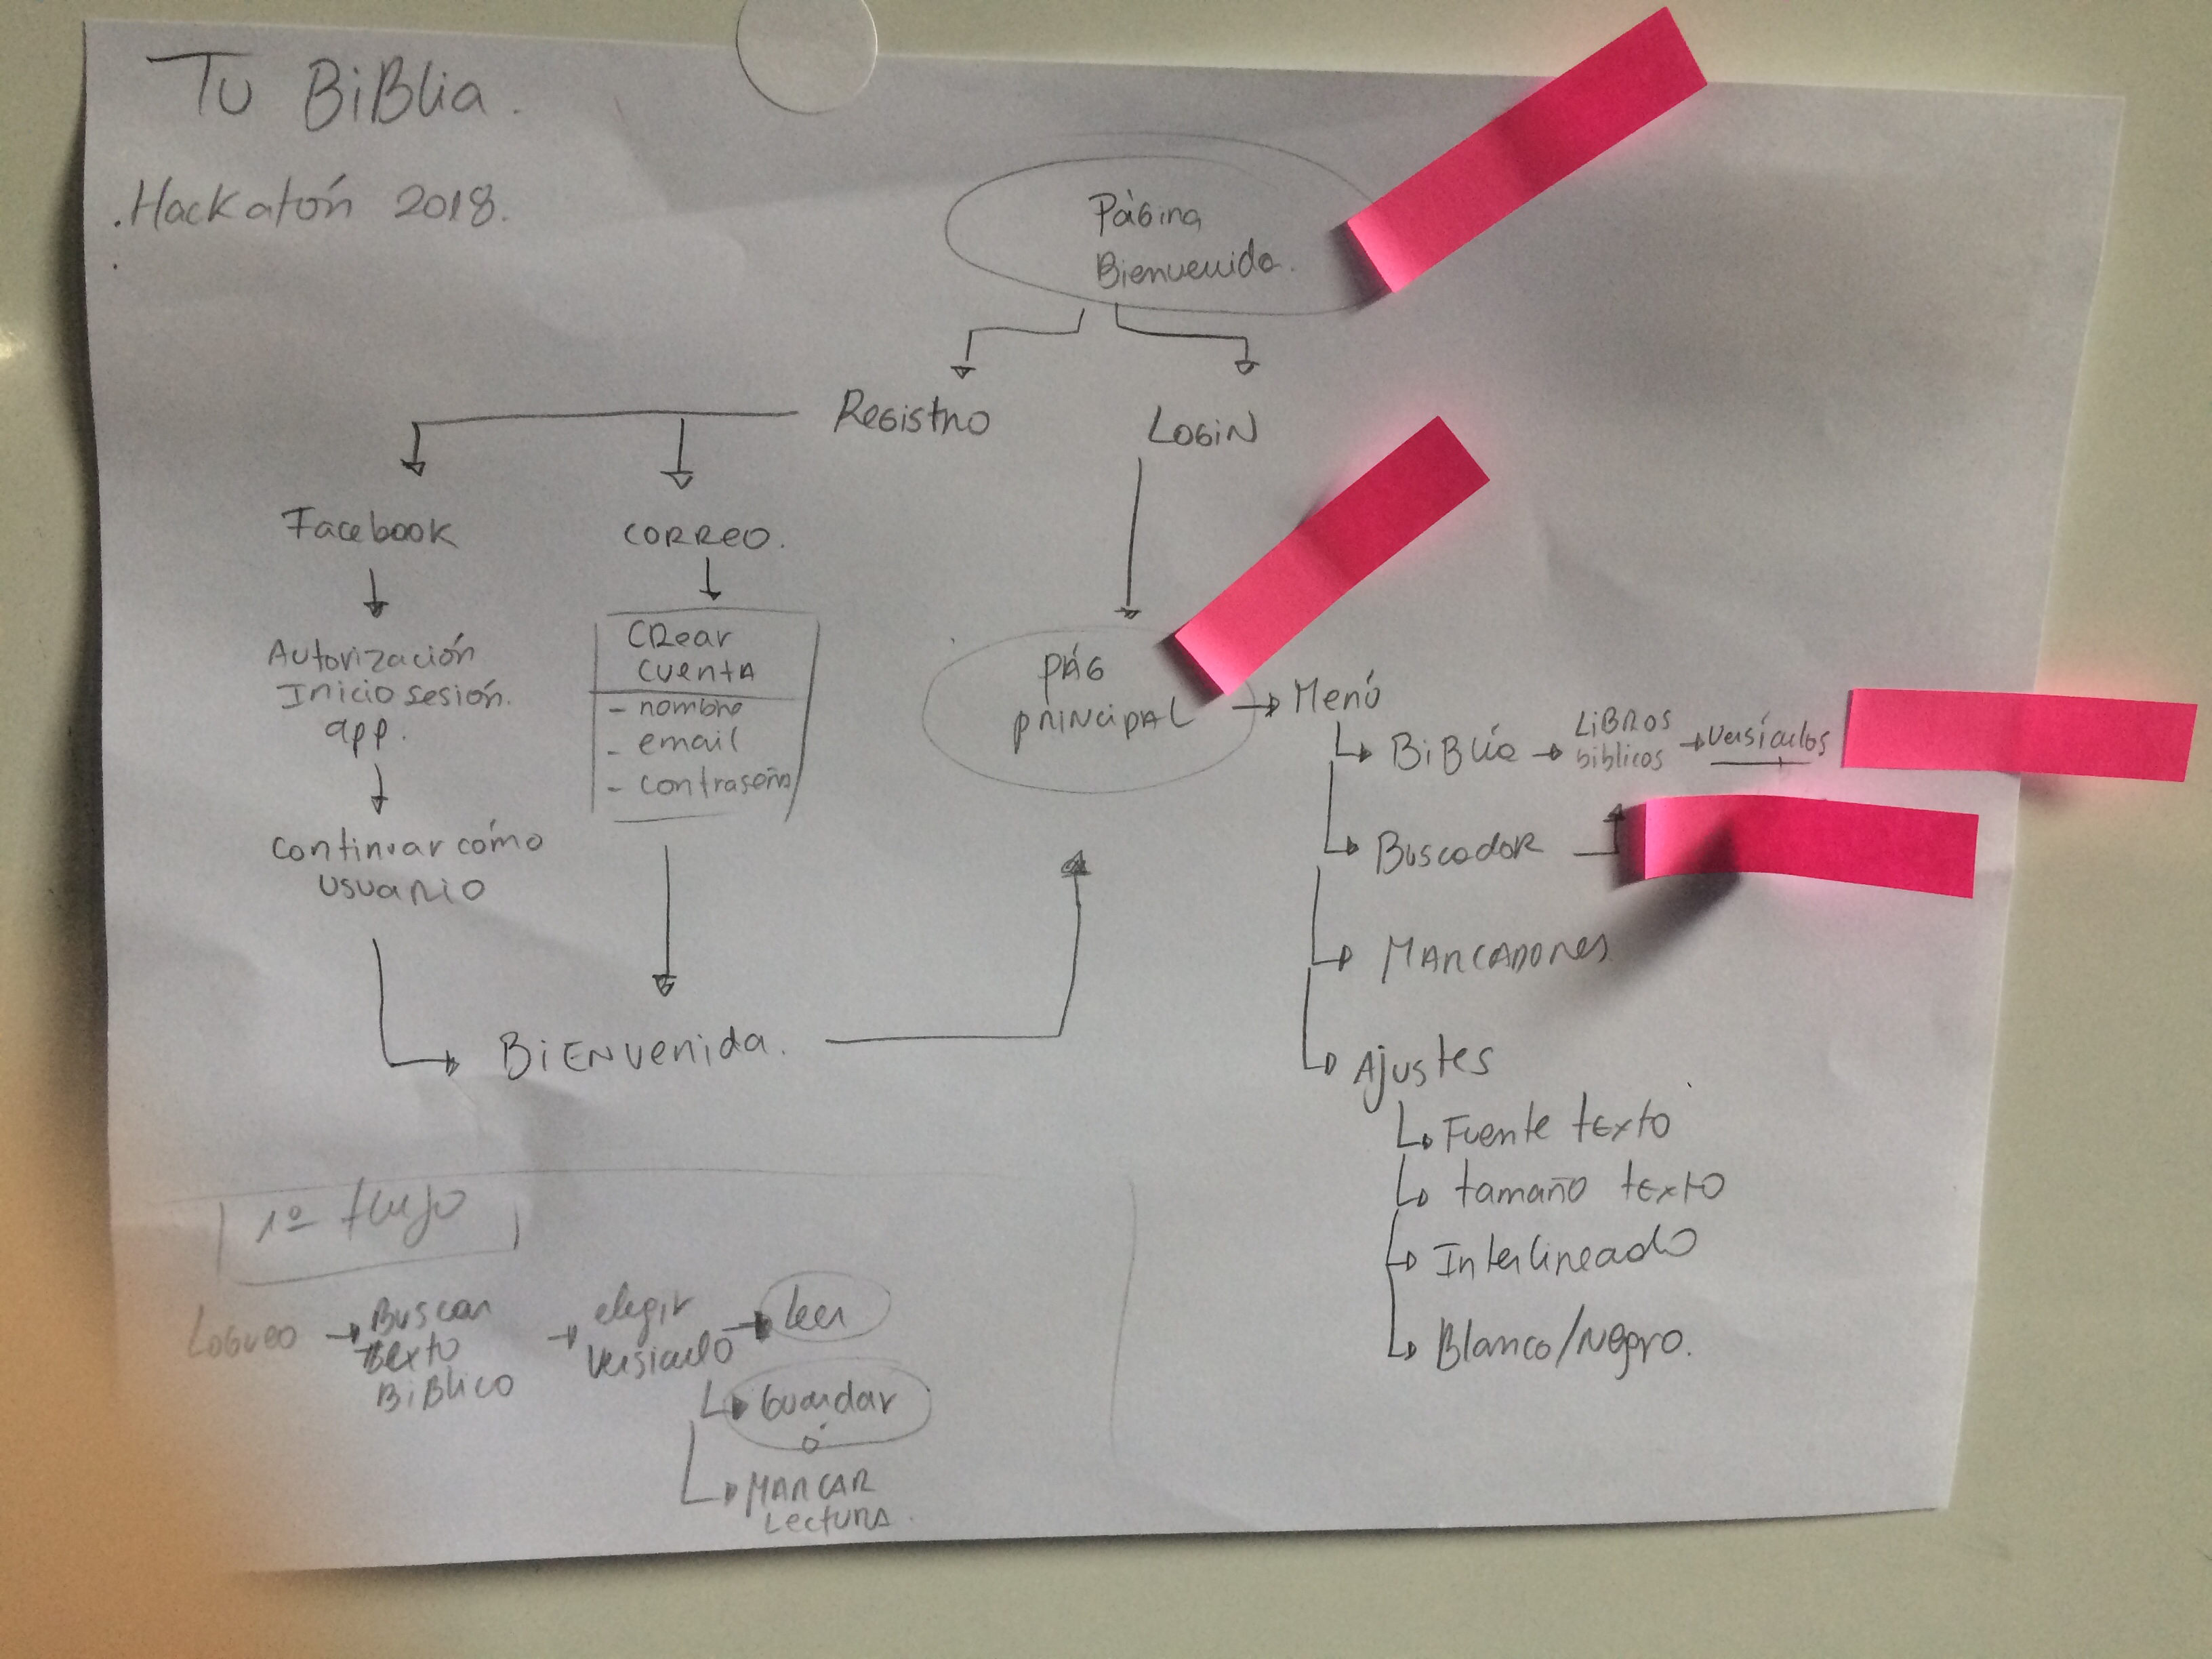 Tu BiBlia.
.Hackatón 2018.
Página
Bienvenida.
Registro
Login
Facebook
correo.
Autorización
Inicio sesión.
app.
Continuar cómo
usuario
Crear
cuenta
- nombre
- email
- contraseña
Bienvenida.
PÁG
principal
Menú
Biblia
Libros
bíblicos
versículos
Buscador
Marcadores
Ajustes
Fuente texto
tamaño texto
Interlineado
Blanco/Negro.
1º flujo
Logueo
Buscar
texto
Biblico
elegir
versículo
leer
Guardar
ó
Marcar
Lectura.